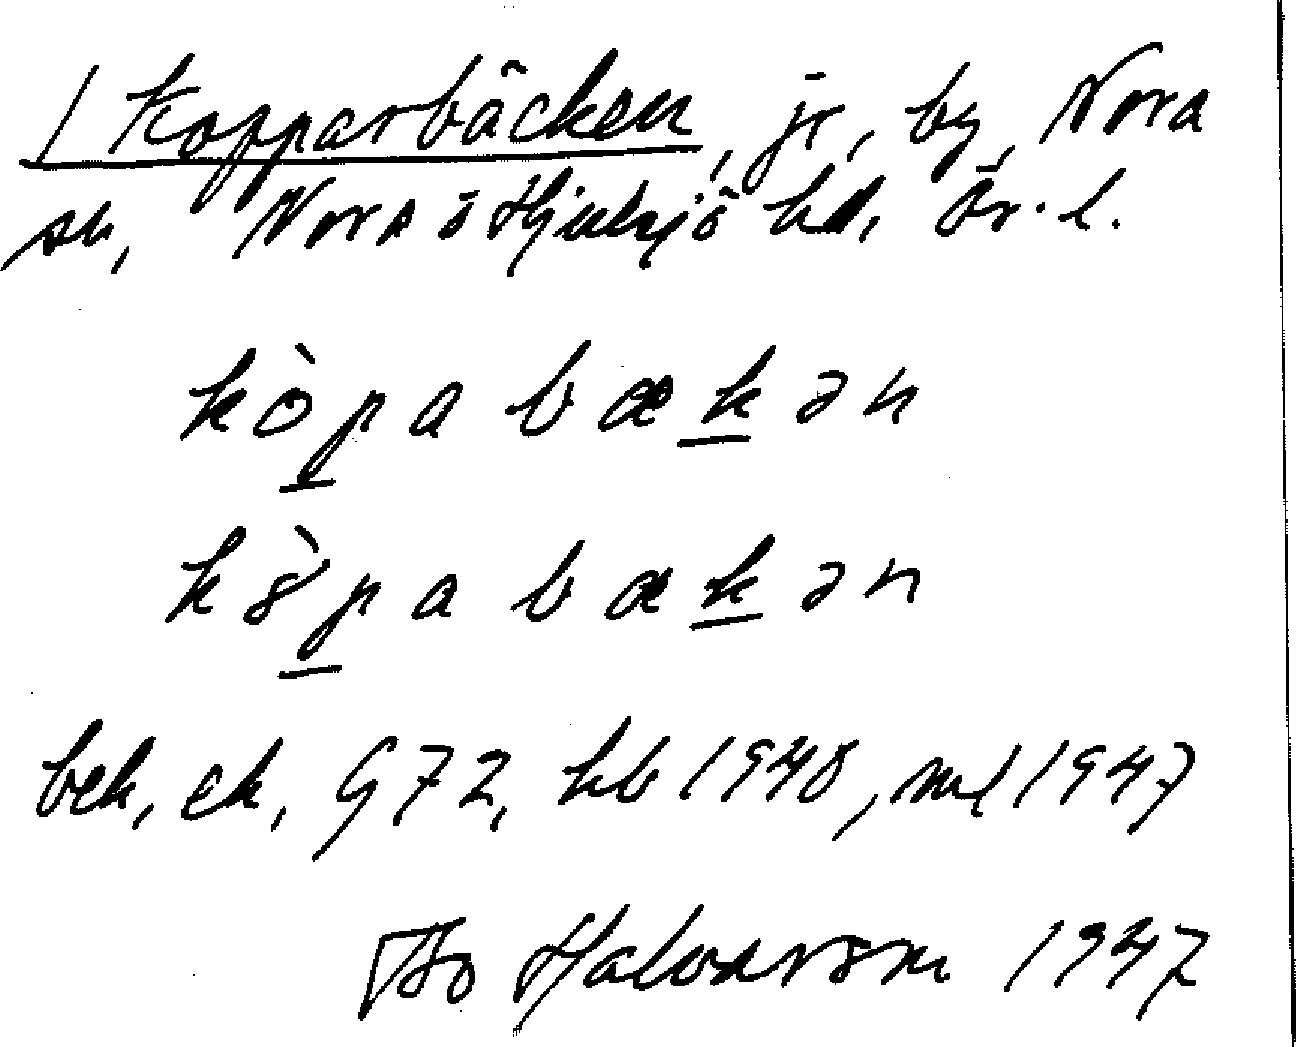 / Kopparbäcken, jr, by, Nora
sn, Nora o Hjulsjö hd, Ör. l.
kòp̲abæk̲ən
kȣ̀p̲abæk̲ən
bek, ek, G72, hb 1940, ml 1947
Bo Halvarson 1947